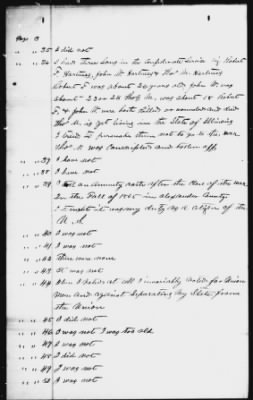 Page 3
" " 35 I did not
" " 36 I had three Sons in the Confederate Service. Viz Robert
F. Hartness, John W. Hartness & Thos M. Hartness
Robert F was about 20 years old, John W. was
about 23 or 24 Thos M. was about 18 Robert
F. & John W. were both killed or wounded and died
Thos M. is yet living in the State of Illinois
I tried to persuade them not to go to the war
Thos M was Conscripted and taken off
" " 37 I have not
" " 38 I have not
" " 39 an Amnesty oath after the Close of the war
In the Fall of 1865 in Alexander County
I thought it was my duty as a citizen of the
U. S
" " 40 I was not
" " 41 I was not
" " 42 There were none
" " 43 It was not
" " 44 When I voted at all I invariably voted for Union
Men and against Separating my State from
the Union
" " 45 I did not
" " 46 I was not I was too old
" " 47 I was not
" " 48 I did not
" " 49 I was not
" " 50 I was not